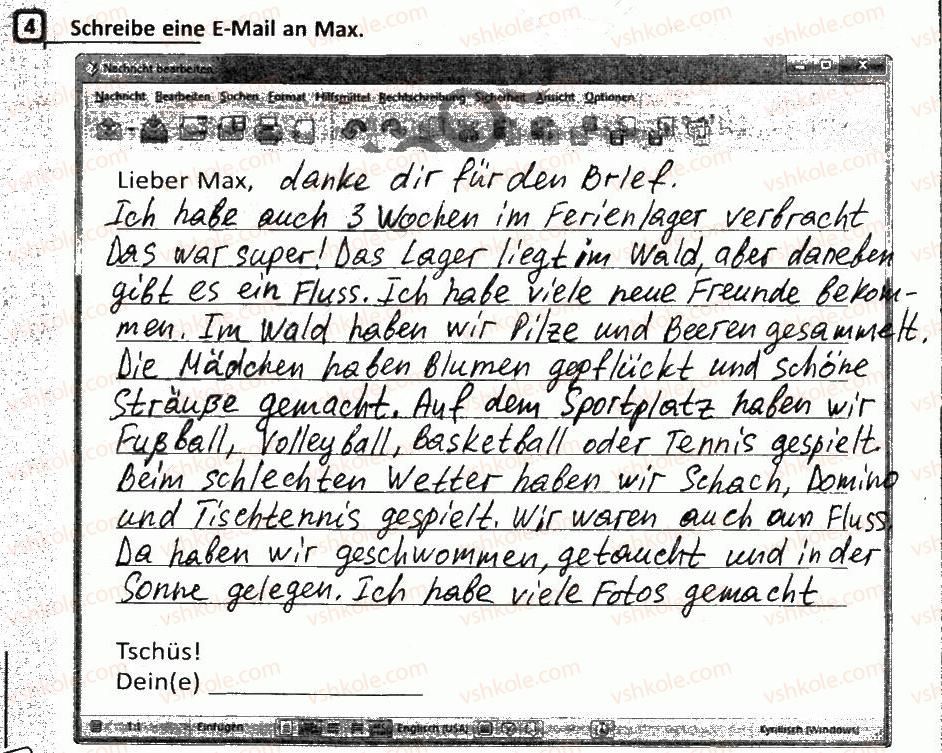 4 Schreibe eine E-Mail an Max.
Nachricht bearbeiten
Nachricht Bearbeiten Suchen Format Hilfsmittel Rechtschreibung Sicherheit Ansicht Optionen
Lieber Max, danke dir für den Brief.
Ich habe auch 3 Wochen im Ferienlager verbracht
Das war super! Das Lager liegt im Wald, aber daneben
gibt es ein Fluss. Ich habe viele neue Freunde bekom-
men. Im Wald haben wir Pilze und Beeren gesammelt.
Die Mädchen haben Blumen gepflückt und schöne
Sträuße gemacht. Auf dem Sportplatz haben wir
Fußball, Volleyball, Basketball oder Tennis gespielt.
Beim schlechten Wetter haben wir Schach, Domino
und Tischtennis gespielt. Wir waren auch am Fluss.
Da haben wir geschwommen, getaucht und in der
Sonne gelegen. Ich habe viele Fotos gemacht
Tschüs!
Dein(e)
1:1 Einfügen Englisch (USA) Kyrillisch (Windows)
vshkole.com